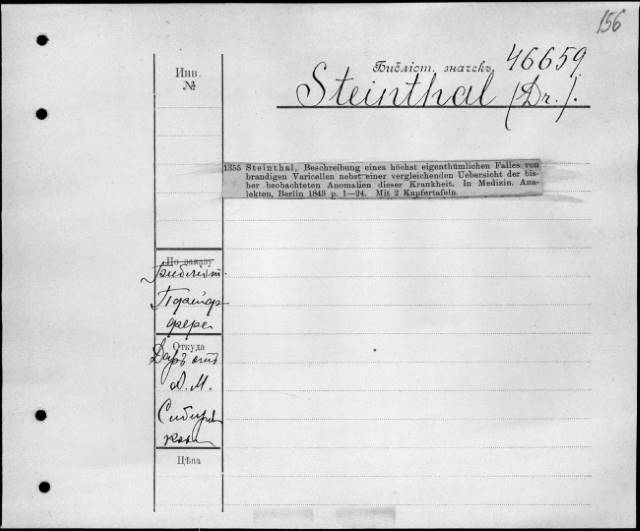 156
Инв.
№
Библіот. значекъ 46659
Steinthal (Dr.).
1355 Steinthal, Beschreibung eines höchst eigenthümlichen Falles von
brandigen Varicellen nebst einer vergleichenden Uebersicht der bis-
her beobachteten Anomalien dieser Krankheit. In Medizin. Ana-
lekten, Berlin 1843 p. 1—24. Mit 2 Kupfertafeln.
По заказу
Библіот.
Откуда
Даръ отъ
Д. М.
Цѣна